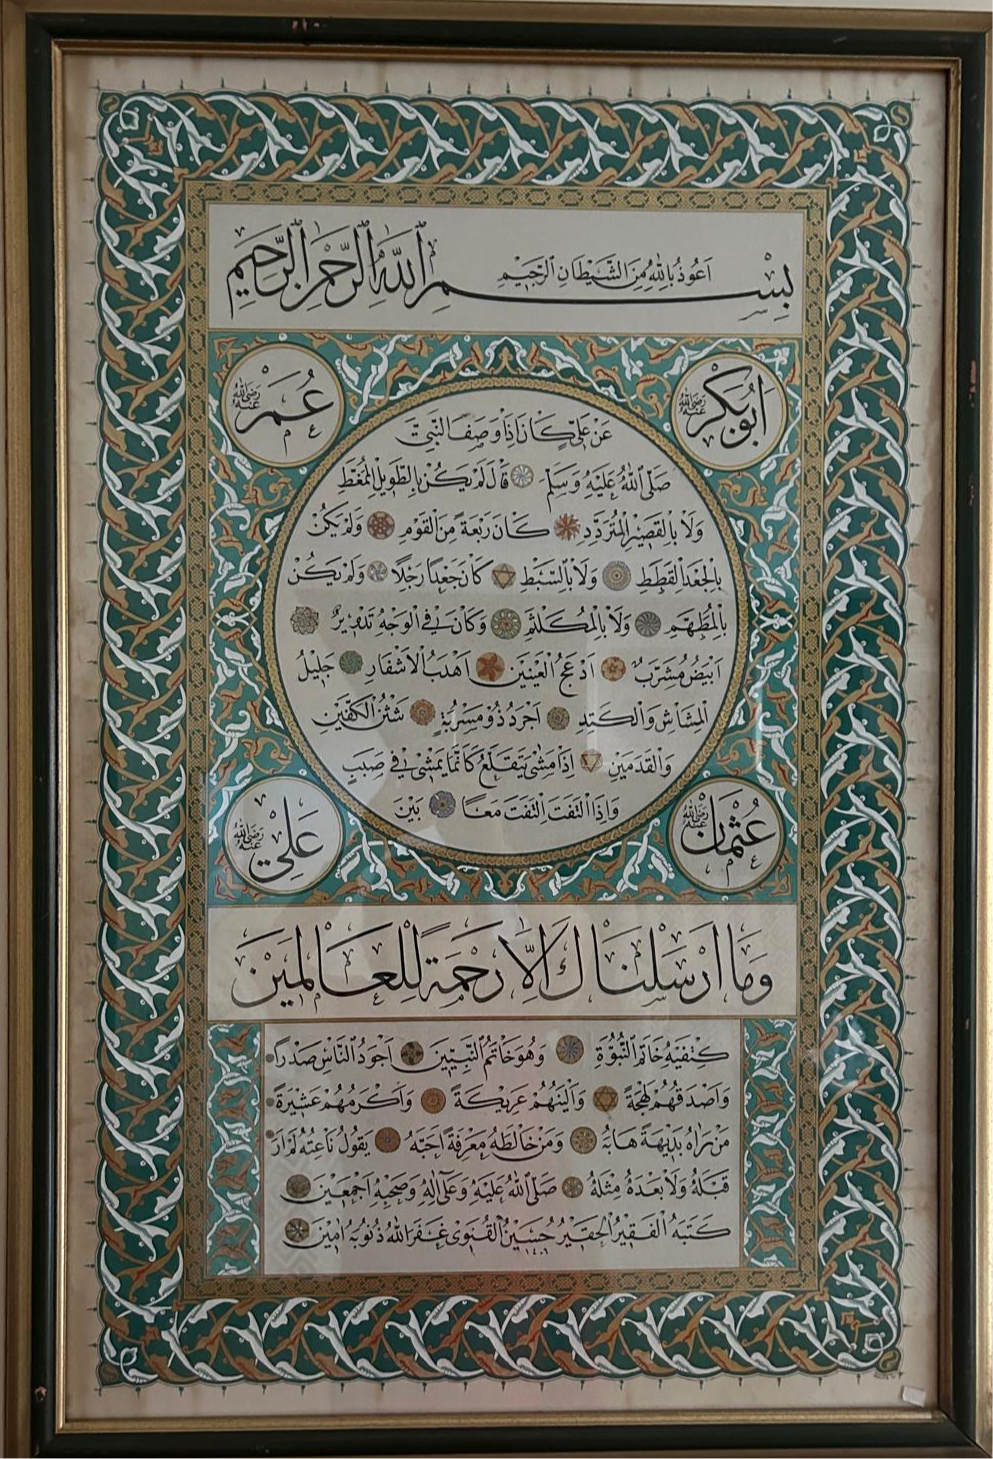 اَعُوذُ بِاللهِ مِنَ الشَّيْطَانِ الرَّجِيْمِ
بِسْمِ اللهِ الرَّحْمٰنِ الرَّحِيْمِ
اَبُوبَكْرٍ رَضِيَ اللهُ عَنْهُ
عُمَرْ رَضِيَ اللهُ عَنْهُ
عَنْ عَلِيٍّ كَانَ اِذَا وَصَفَ النَّبِيَّ
صَلَّى اللهُ عَلَيْهِ وَسَلَّمْ قَالَ لَمْ يَكُنْ بِالطَّوِيلِ الْمُمَّغِطِ
وَلَا بِالْقَصِيْرِ الْمُتَرَدِّدِ كَانَ رَبْعَةً مِنَ الْقَوْمِ وَلَمْ يَكُنْ
بِالْجَعْدِ الْقَطَطِ وَلَا بِالسَّبْطِ كَانَ جَعْدًا رَجِلًا وَلَمْ يَكُنْ
بِالْمُطَهَّمِ وَلَا بِالْمُكَلْثَمِ وَكَانَ فِي الْوَجْهِ تَدْوِيْرٌ
اَبْيَضُ مُشْرَبٌ اَدْعَجُ الْعَيْنَيْنِ اَهْدَبُ الْاَشْفَارِ جَلِيْلُ
الْمُشَاشِ وَالْكَتَدِ اَجْرَدُ ذُو مَسْرُبَةٍ شَثْنُ الْكَفَّيْنِ
وَالْقَدَمَيْنِ اِذَا مَشٰى يَتَقَلَّعُ كَاَنَّمَا يَمْشِي فِي صَبَبٍ
وَاِذَا الْتَفَتَ اِلْتَفَتَ مَعًا بَيْنَ
عُثْمَانْ رَضِيَ اللهُ عَنْهُ
عَلِيْ رَضِيَ اللهُ عَنْهُ
وَمَا اَرْسَلْنَاكَ اِلَّا رَحْمَةً لِلْعَالَمِيْنَ
كَتِفَيْهِ خَاتَمُ النُّبُوَّةِ وَهُوَ خَاتَمُ النَّبِيِّيْنَ اَجْوَدُ النَّاسِ صَدْرًا
وَاَصْدَقُهُمْ لَهْجَةً وَاَلْيَنُهُمْ عَرِيْكَةً وَاَكْرَمُهُمْ عَشِيْرَةً
مَنْ رَاٰهُ بَدِيْهَةً هَابَهُ وَمَنْ خَالَطَهُ مَعْرِفَةً اَحَبَّهُ يَقُولُ نَاعِتُهُ لَمْ اَرَ
قَبْلَهُ وَلَا بَعْدَهُ مِثْلَهُ صَلَّى اللهُ عَلَيْهِ وَعَلٰى اٰلِهِ وَصَحْبِهِ اَجْمَعِيْنَ
كَتَبَهُ الْفَقِيْرُ الْحَقِيْرُ حُسَيْنُ الْقُنَوِى غَفَرَ اللهُ ذُنُوبَهُ اٰمِيْنَ
١٤٠٦